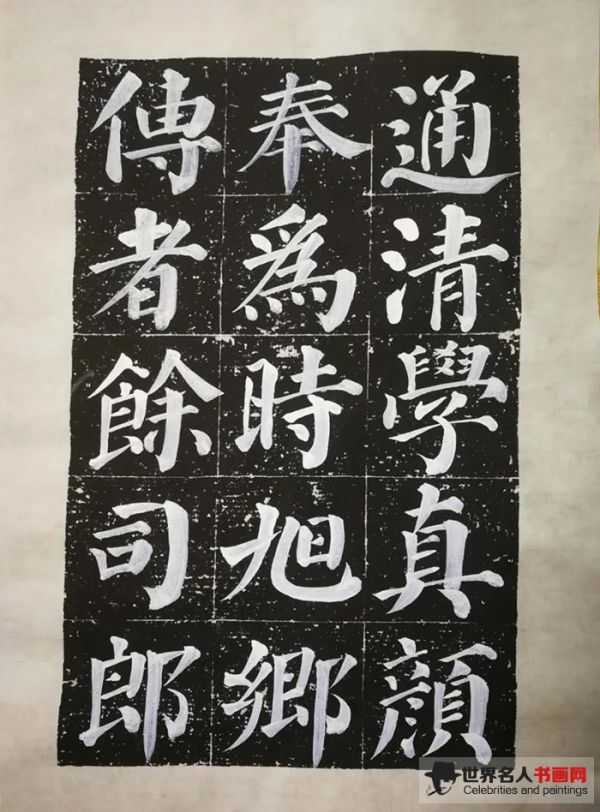 通清學真顏
奉為時旭鄉
傅者餘司郎
世界名人书画网
Celebrities and paintings